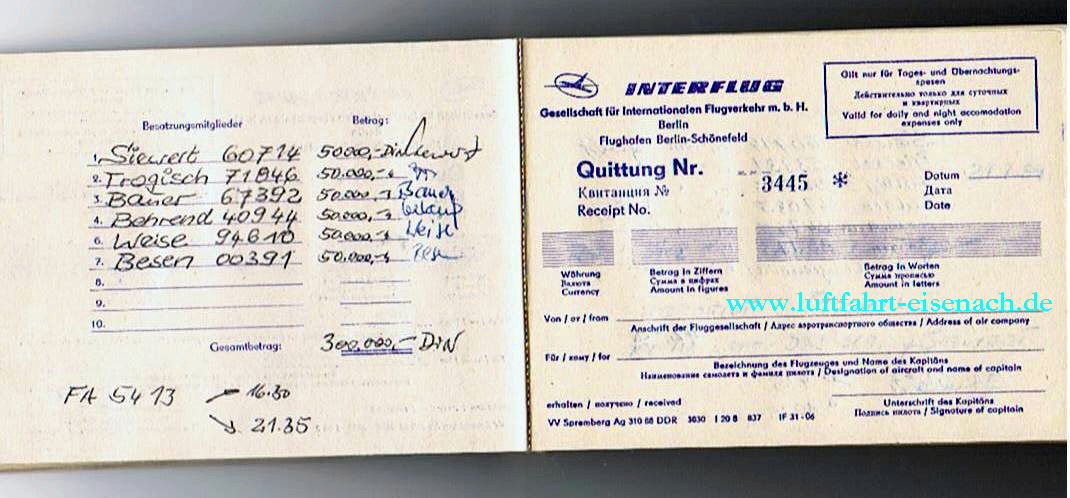 Besatzungsmitglieder Betrag:
1. Siewert 60714 50.000,- Din
2. Trogisch 71846 50.000,-
3. Bauer 67392 50.000,- Bauer
4. Behrend 40944 50.000,-
6. Weise 94610 50.000,- Weise
7. Besen 00391 50.000,-
8.
9.
10.
Gesamtbetrag: 300.000,- DIN
FA 5413 16.30
21.35
INTERFLUG
Gesellschaft für Internationalen Flugverkehr m. b. H.
Berlin
Flughafen Berlin-Schönefeld
Gilt nur für Tages- und Übernachtungs-
spesen
Действительно только для суточных
и квартирных
Valid for daily and night accomodation
expenses only
Quittung Nr.
Квитанция №
Receipt No.
3445 *
Datum
Дата
Date
Währung
Валюта
Currency
Betrag in Ziffern
Сумма в цифрах
Amount in figures
Betrag in Worten
Сумма прописью
Amount in letters
www.luftfahrt-eisenach.de
Von / от / from
Anschrift der Fluggesellschaft / Адрес аэротранспортного общества / Address of air company
Für / кому / for
Bezeichnung des Flugzeuges und Name des Kapitäns
Наименование самолета и фамилия пилота / Designation of aircraft and name of captain
erhalten / получено / received
Unterschrift des Kapitäns
Подпись пилота / Signature of captain
VV Spremberg Ag 310 68 DDR 3030 I 20 8 837 IF 31-06